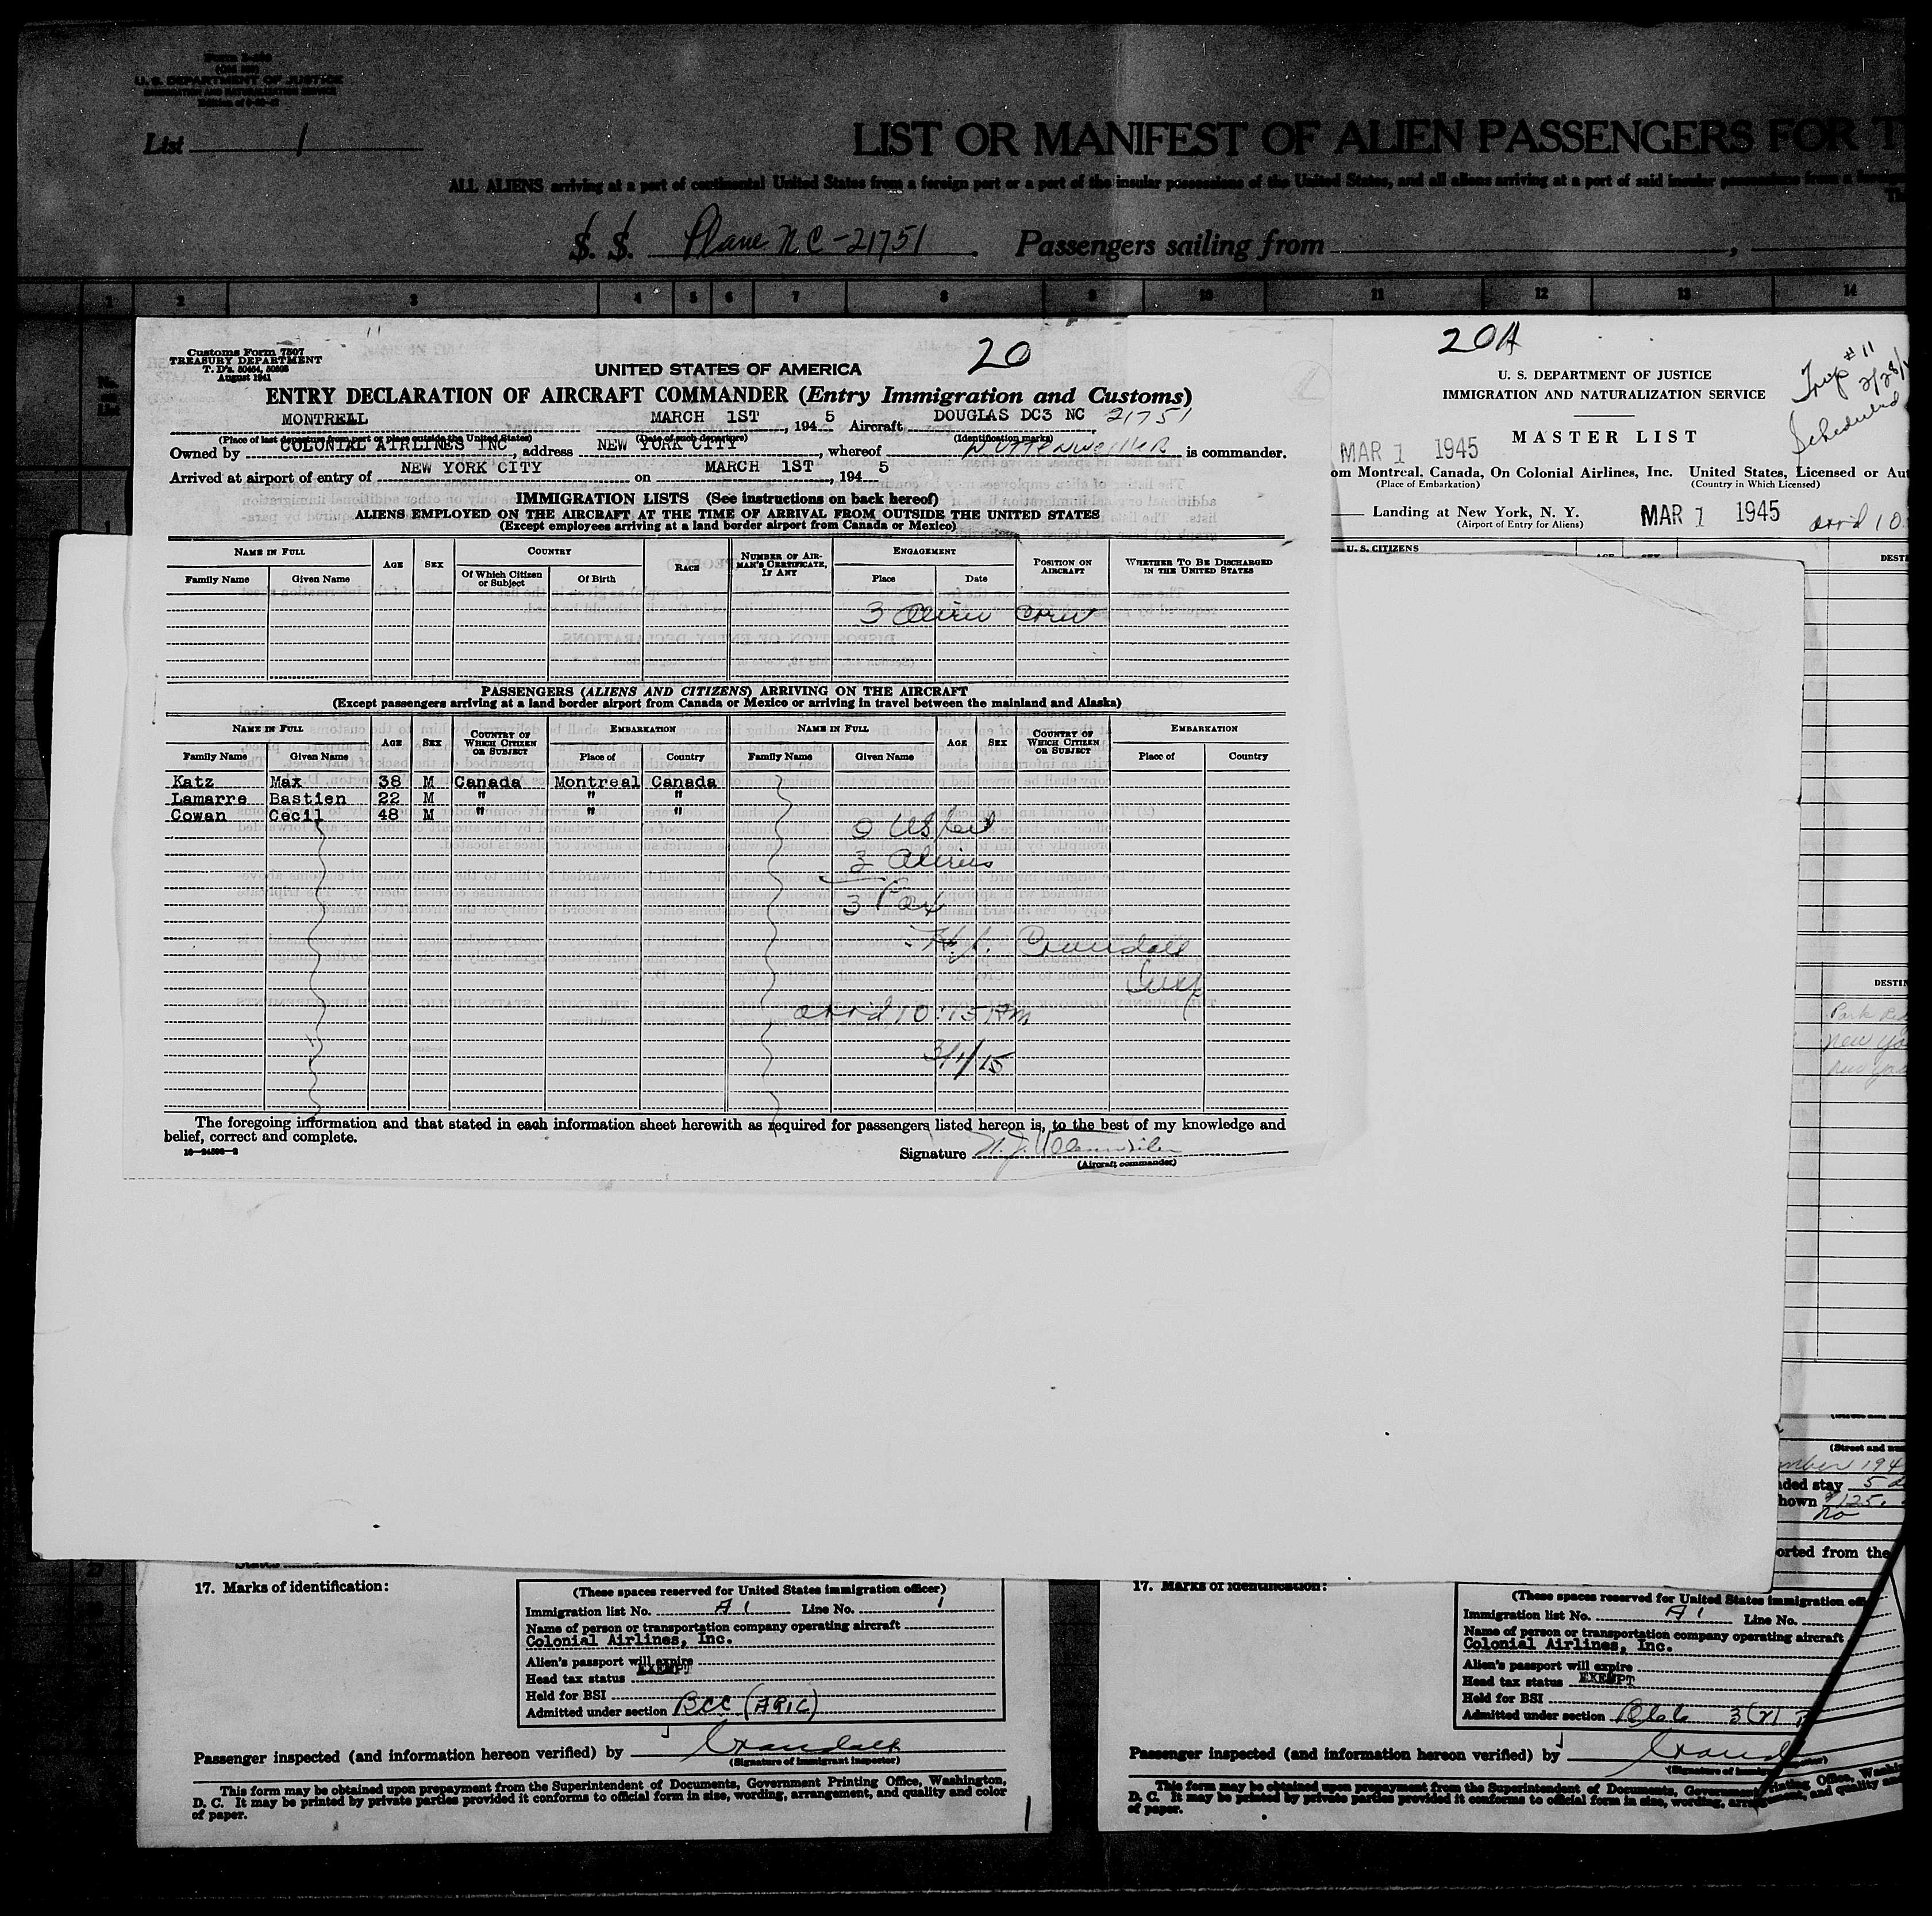 U. S. DEPARTMENT OF JUSTICE
IMMIGRATION AND NATURALIZATION SERVICE
List 1
LIST OR MANIFEST OF ALIEN PASSENGERS FOR T
ALL ALIENS arriving at a port of continental United States from a foreign port or a port of the insular possessions of the United States, and all aliens arriving at a port of said insular possessions from a
S. S. Plane NC-21751 Passengers sailing from
1 2 3 4 5 6 7 8 9 10 11 12 13 14
Customs Form 7507
TREASURY DEPARTMENT
T. D's. 50464, 50503
August 1941
20
UNITED STATES OF AMERICA
ENTRY DECLARATION OF AIRCRAFT COMMANDER (Entry Immigration and Customs)
MONTREAL MARCH 1ST, 1945 Aircraft DOUGLAS DC3 NC 21751
(Place of last departure from port or place outside the United States) (Date of such departure) (Identification marks)
Owned by COLONIAL AIRLINES INC, address NEW YORK CITY, whereof is commander.
Arrived at airport of entry of NEW YORK CITY on MARCH 1ST, 1945
IMMIGRATION LISTS (See instructions on back hereof)
ALIENS EMPLOYED ON THE AIRCRAFT AT THE TIME OF ARRIVAL FROM OUTSIDE THE UNITED STATES
(Except employees arriving at a land border airport from Canada or Mexico)
NAME IN FULL AGE SEX COUNTRY RACE NUMBER OF AIRMAN'S CERTIFICATE, IF ANY ENGAGEMENT POSITION ON AIRCRAFT WHETHER TO BE DISCHARGED IN THE UNITED STATES
Family Name Given Name Of Which Citizen or Subject Of Birth Place Date
3 Alien Crew
PASSENGERS (ALIENS AND CITIZENS) ARRIVING ON THE AIRCRAFT
(Except passengers arriving at a land border airport from Canada or Mexico or arriving in travel between the mainland and Alaska)
NAME IN FULL AGE SEX COUNTRY OF WHICH CITIZEN OR SUBJECT EMBARKATION NAME IN FULL AGE SEX COUNTRY OF WHICH CITIZEN OR SUBJECT EMBARKATION
Family Name Given Name Place of Country Family Name Given Name Place of Country
Katz Max 38 M Canada Montreal Canada
Lamarre Bastien 22 M " " "
Cowan Cecil 48 M " " "
3 Aliens
3 Pax
Crandall
Insp
arr'd 10:15 PM
The foregoing information and that stated in each information sheet herewith as required for passengers listed hereon is, to the best of my knowledge and
belief, correct and complete.
Signature
(Aircraft commander)
20A
U. S. DEPARTMENT OF JUSTICE
IMMIGRATION AND NATURALIZATION SERVICE
Trip #11
Scheduled
MASTER LIST
MAR 1 1945
om Montreal, Canada, On Colonial Airlines, Inc. United States, Licensed or Aut
(Place of Embarkation) (Country in Which Licensed)
Landing at New York, N. Y. MAR 1 1945 arr'd 10
(Airport of Entry for Aliens)
U. S. CITIZENS
AGE SEX
DEST
DESTIN
New Yo
(Street and num
nded stay 5
hown $125.
no
orted from the
17. Marks of identification:
(These spaces reserved for United States immigration officer)
Immigration list No. A1 Line No. 1
Name of person or transportation company operating aircraft
Colonial Airlines, Inc.
Alien's passport will expire
Head tax status EXEMPT
Held for BSI
Admitted under section BCC (ARIC)
Passenger inspected (and information hereon verified) by Crandall
(Signature of immigrant inspector)
This form may be obtained upon prepayment from the Superintendent of Documents, Government Printing Office, Washington,
D. C. It may be printed by private parties provided it conforms to official form in size, wording, arrangement, and quality and color
of paper.
1
17. Marks of identification:
(These spaces reserved for United States immigration off
Immigration list No. A1 Line No.
Name of person or transportation company operating aircraft
Colonial Airlines, Inc.
Alien's passport will expire
Head tax status EXEMPT
Held for BSI
Admitted under section
Passenger inspected (and information hereon verified) by Crand
This form may be obtained upon prepayment from the Superintendent of Documents, Government Printing Office, Washi
D. C. It may be printed by private parties provided it conforms to official form in size, wording, arrangement, and quality and
of paper.